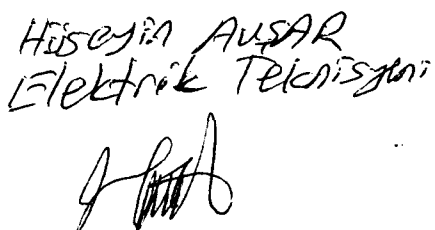 Hüseyin AVŞAR
Elektrik Teknisyeni